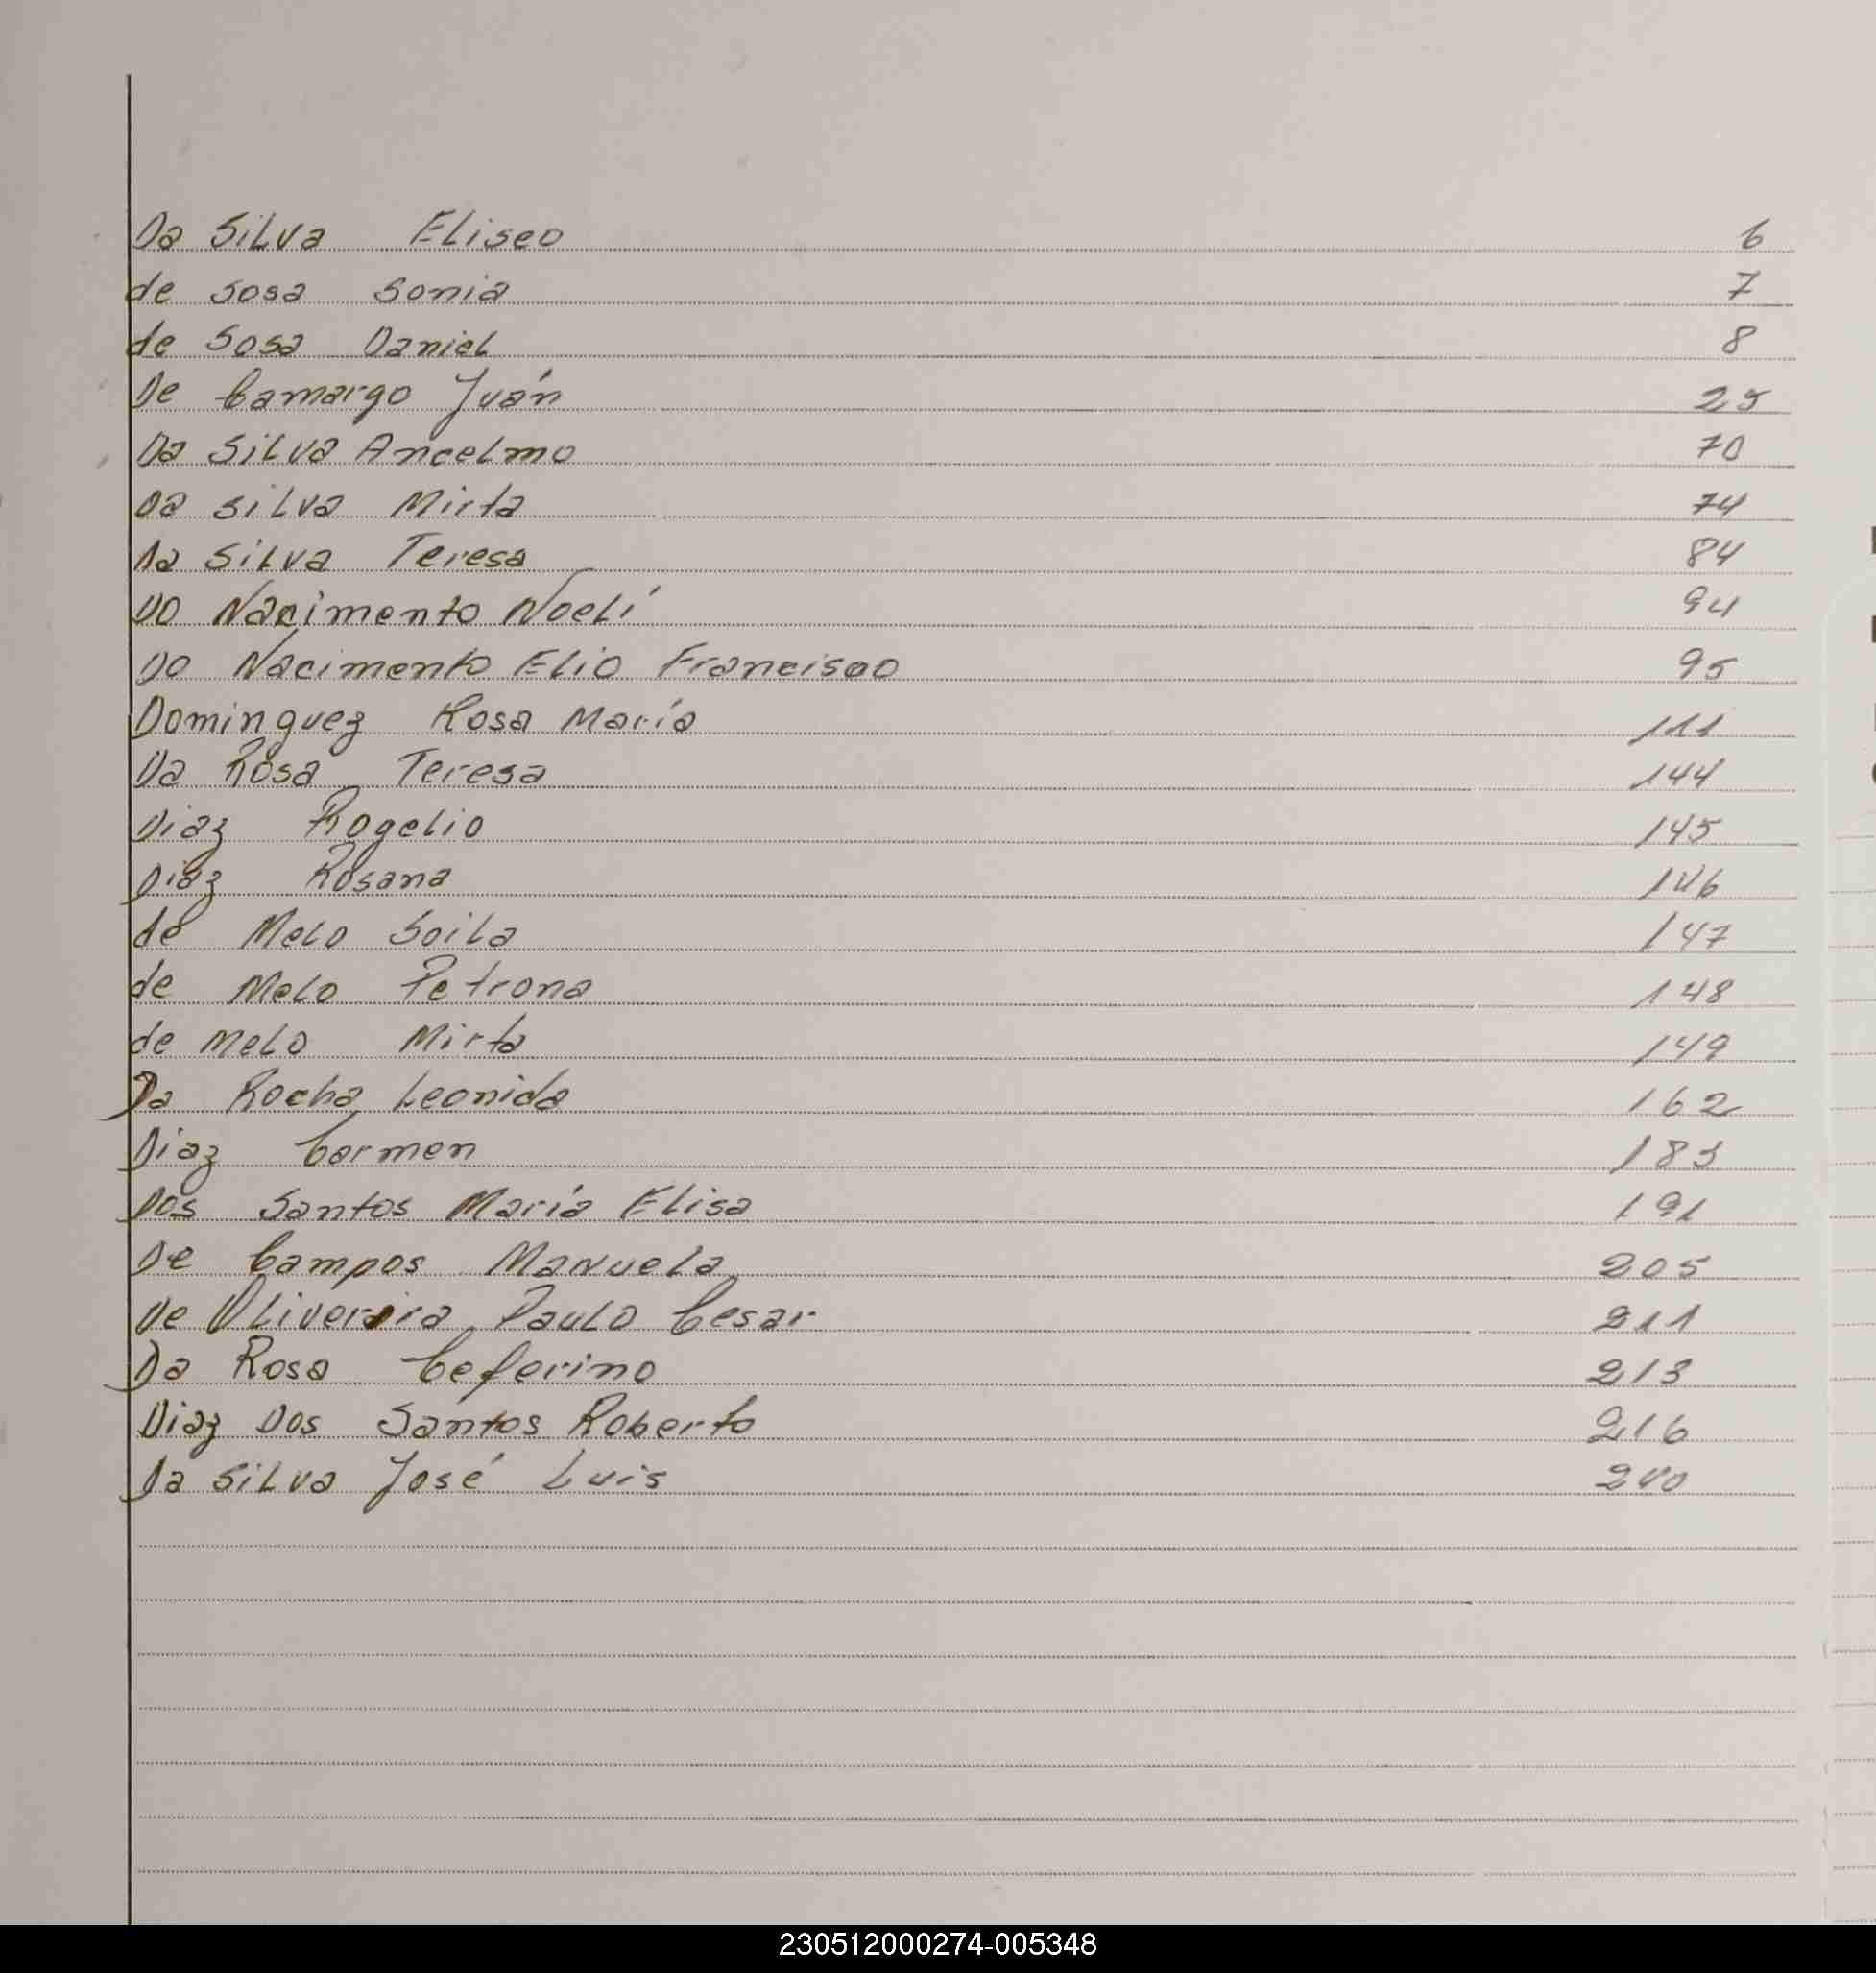 Da Silva Eliseo 6
de Sosa Sonia 7
de Sosa Daniel 8
De Camargo Juán 25
Da Silva Ancelmo 70
Da Silva Mirta 74
Da Silva Teresa 84
Do Nacimento Noelí 94
Do Nacimento Elio Francisco 95
Dominguez Rosa María 111
Da Rosa Teresa 144
Diaz Rogelio 145
Diaz Rosana 146
de Melo Soila 147
de Melo Petrona 148
de Melo Mirta 149
Da Rocha Leonida 162
Diaz Carmen 183
Dos Santos María Elisa 191
De Campos Manuela 205
De Paulo Cesar 211
Da Rosa Ceferino 213
Diaz Dos Santos Roberto 216
Da Silva José Luis 240
230512000274-005348